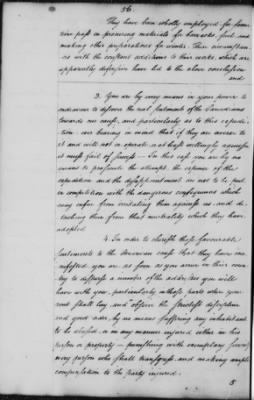 56.
They have been wholly employed for some
time past in procuring materials for barracks, fuel and
making other preparations for winter. These circumstan-
ces with the constant additions to their works, which are
apparently defensive have led to the above conclusion
and
3. You are by every means in your power to
endeavour to discover the real sentiments of the Canadians
towards our cause, and particularly as to this expedi-
tion: ever bearing in mind that if they are averse to
it and will not co-operate or at least willingly acquiesce
it must fail of success — In this case you are by no
means to prosecute the attempt, the expence of the
expedition and the disappointment are not to be put
in competition with the dangerous consequences which
may ensue from irritating them against us and de-
taching them from that neutrality which they have
adopted.
4. In order to cherish those favourable
Sentiments to the American cause that they have ma-
nifested you are, as soon as you arrive in their coun-
try to disperse a number of the addresses you will
have with you, particularly in those parts where your
rout shall lay, and observe the strictest discipline
and good order, by no means suffering any inhabitant
to be abused or in any manner injured either in his
person or property — punishing with exemplary severity
every person who shall transgress, and making ample
compensation to the party injured.
5